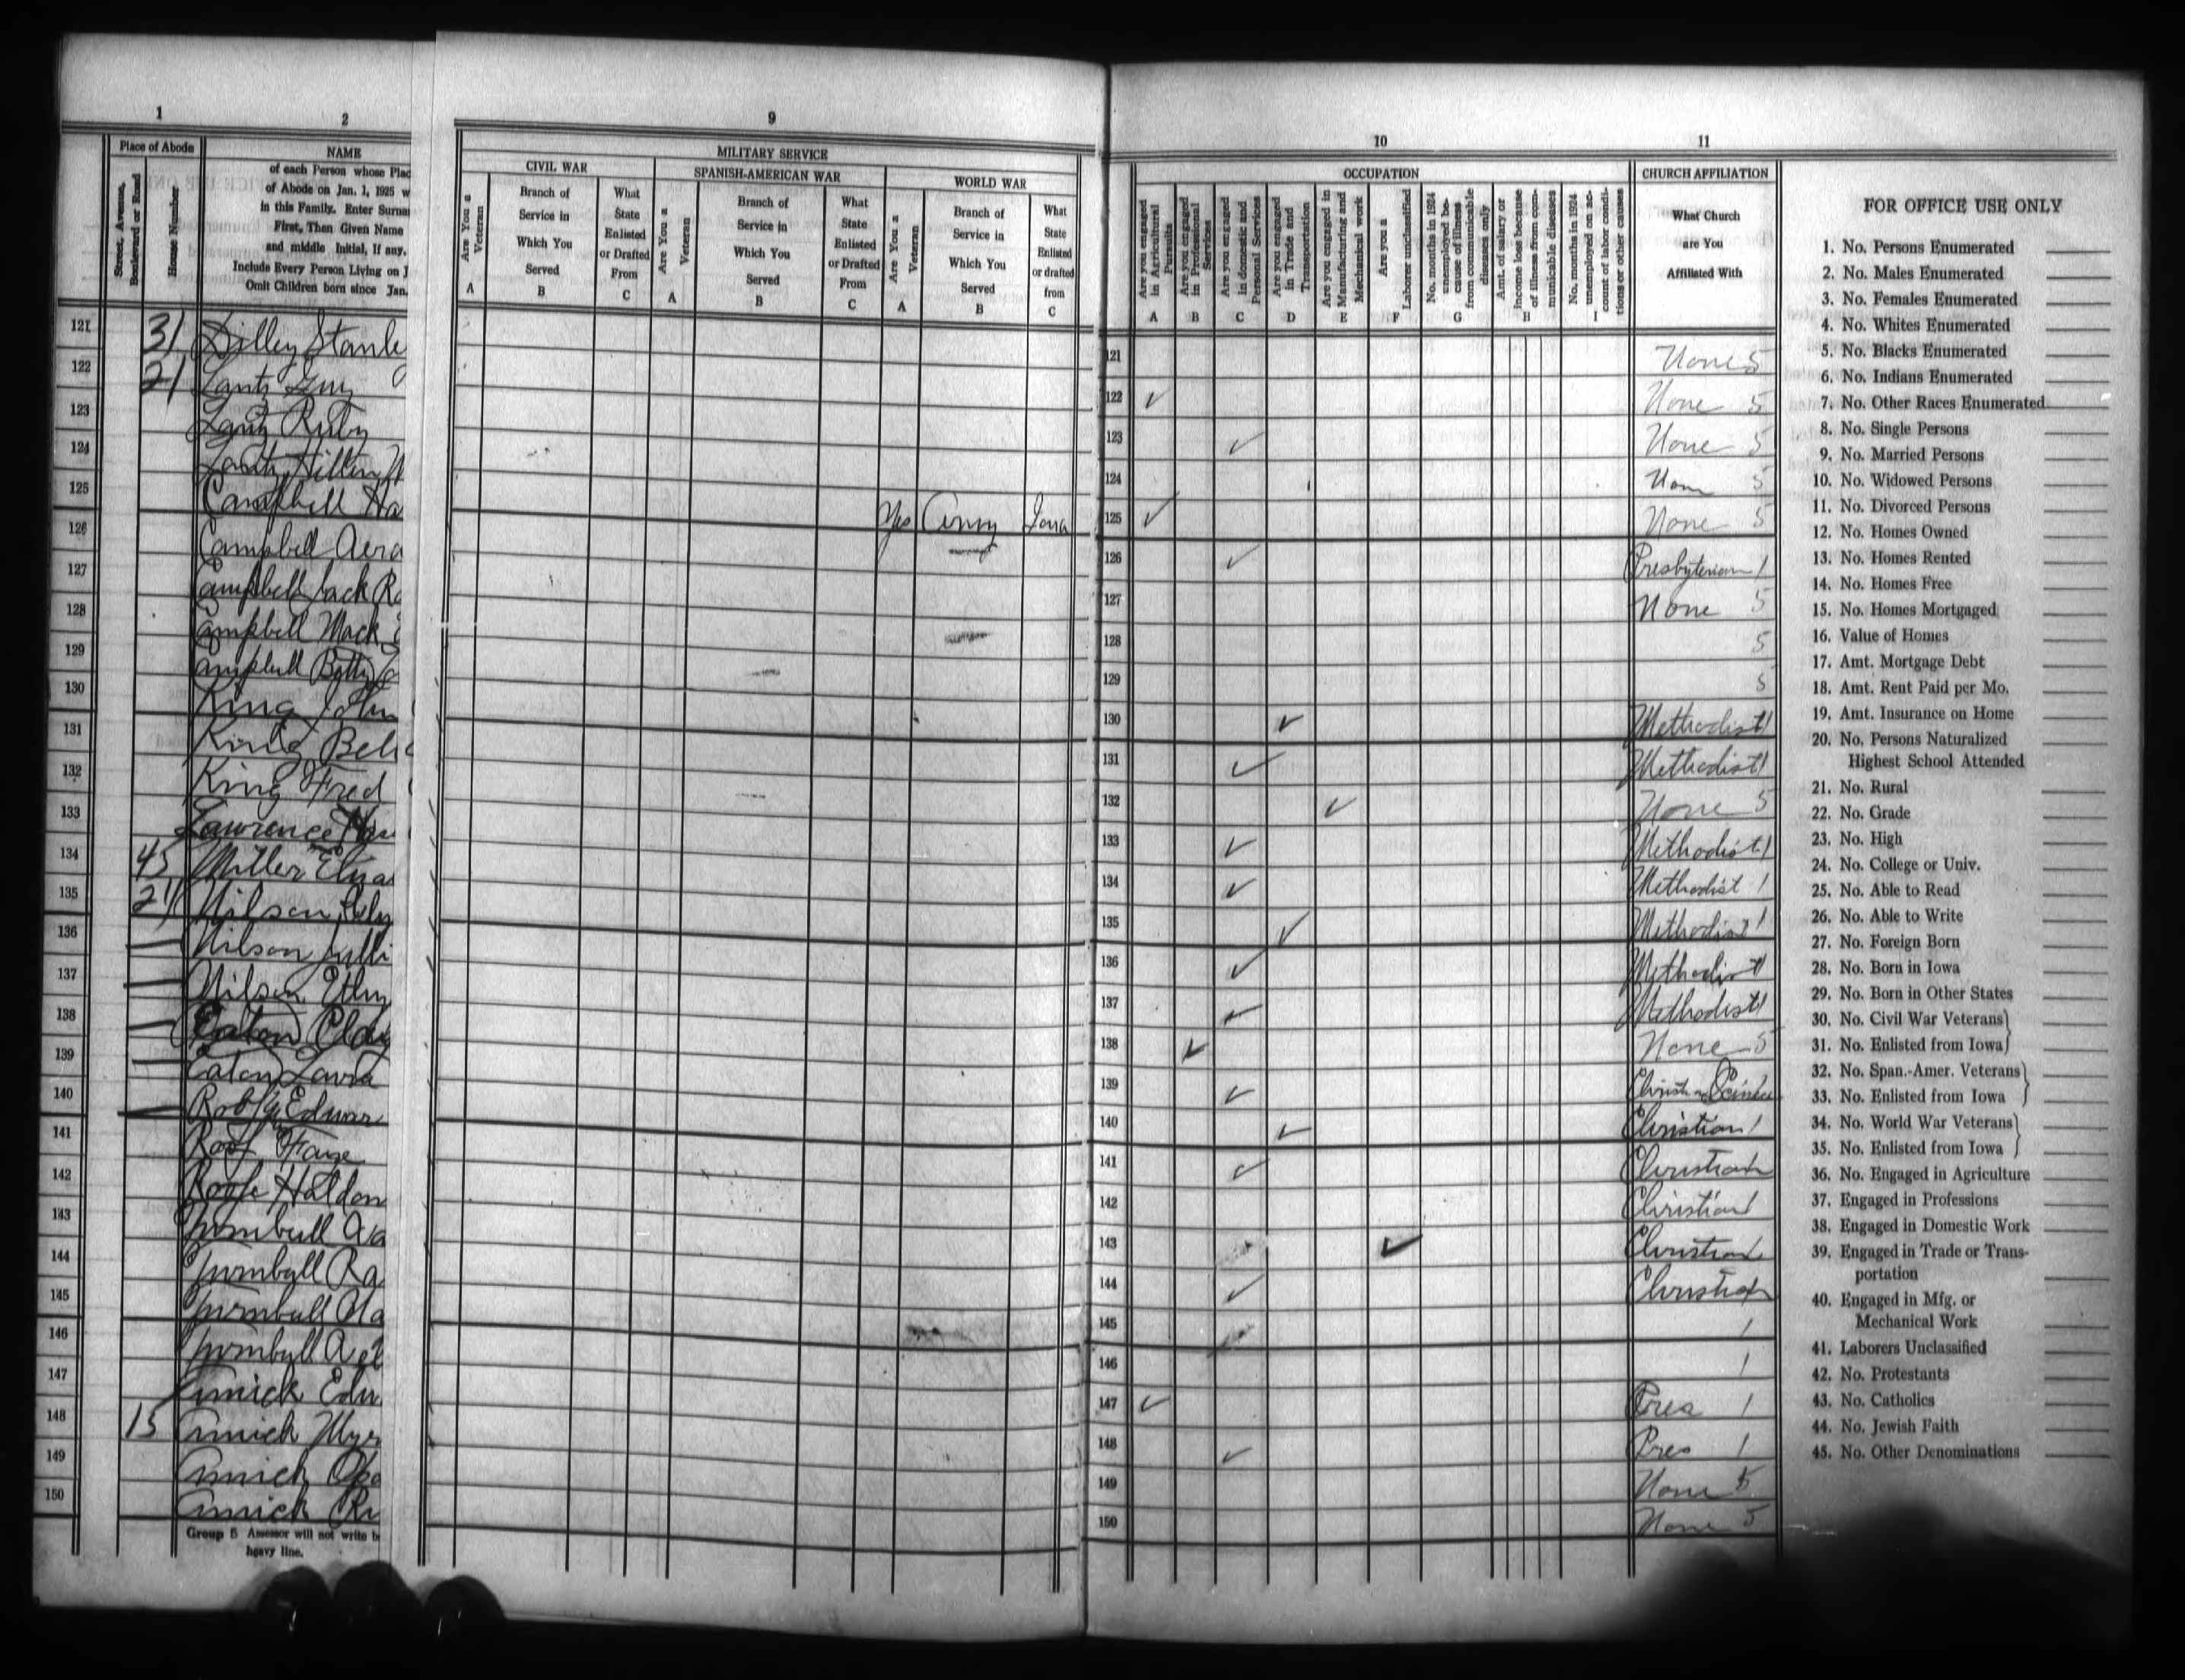 1
2
Place of Abode
Street, Avenue, Boulevard or Road
House Number
NAME
of each Person whose Plac
of Abode on Jan. 1, 1925 w
in this Family. Enter Surna
First, Then Given Name
and middle Initial, if any.
Include Every Person Living on J
Omit Children born since Jan.
9
MILITARY SERVICE
CIVIL WAR
SPANISH-AMERICAN WAR
WORLD WAR
Are You a Veteran
A
Branch of Service in Which You Served
B
What State Enlisted or Drafted From
C
Are You a Veteran
A
Branch of Service in Which You Served
B
What State Enlisted or Drafted From
C
Are You a Veteran
A
Branch of Service in Which You Served
B
What State Enlisted or drafted from
C
10
OCCUPATION
Are you engaged in Agricultural Pursuits
A
Are you engaged in Professional Services
B
Are you engaged in domestic and Personal Services
C
Are you engaged in Trade and Transportation
D
Are you engaged in Manufacturing and Mechanical work
E
Are you a Laborer unclassified
F
No. months in 1924 unemployed because of illness from communicable diseases only
G
Amt. of salary or income loss because of illness from communicable diseases
H
No. months in 1924 unemployed on account of labor conditions or other causes
I
11
CHURCH AFFILIATION
What Church are You Affiliated With
121 31 Dilley Stanle 121 None 5
122 21 Lantz Guy 122 ✓ None 5
123 Lantz Ruby 123 ✓ None 5
124 Lantz 124 None 5
125 Campbell Ha Yes Army Iowa 125 ✓ None 5
126 Campbell 126 ✓ Presbyterian 1
127 Campbell Jack Ra 127 None 5
128 Campbell Mack 128 5
129 Campbell Betty 129 5
130 King John 130 ✓ Methodist 1
131 King Bel 131 ✓ Methodist 1
132 King Fred 132 ✓ None 5
133 Lawrence 133 ✓ Methodist 1
134 45 Miller Eliza 134 ✓ Methodist 1
135 21 Wilson 135 ✓ Methodist 1
136 Wilson 136 ✓ Methodist 1
137 Wilson 137 ✓ Methodist 1
138 Eaton 138 ✓ None 5
139 Eaton 139 ✓ Christian Science
140 Edwar 140 ✓ Christian 1
141 Roof Faye 141 ✓ Christian
142 Haldon 142 Christian 1
143 Turnbull 143 ✓ Christian
144 Turnbull Ra 144 ✓ Christian
145 Turnbull 145 1
146 Turnbull 146 1
147 Amick Edw 147 ✓ Pres 1
148 15 Amick Myr 148 ✓ Pres 1
149 Amick 149 None 5
150 Amick Ru 150 None 5
Group 5 Assessor will not write b
heavy line.
FOR OFFICE USE ONLY
1. No. Persons Enumerated
2. No. Males Enumerated
3. No. Females Enumerated
4. No. Whites Enumerated
5. No. Blacks Enumerated
6. No. Indians Enumerated
7. No. Other Races Enumerated
8. No. Single Persons
9. No. Married Persons
10. No. Widowed Persons
11. No. Divorced Persons
12. No. Homes Owned
13. No. Homes Rented
14. No. Homes Free
15. No. Homes Mortgaged
16. Value of Homes
17. Amt. Mortgage Debt
18. Amt. Rent Paid per Mo.
19. Amt. Insurance on Home
20. No. Persons Naturalized
Highest School Attended
21. No. Rural
22. No. Grade
23. No. High
24. No. College or Univ.
25. No. Able to Read
26. No. Able to Write
27. No. Foreign Born
28. No. Born in Iowa
29. No. Born in Other States
30. No. Civil War Veterans
31. No. Enlisted from Iowa
32. No. Span.-Amer. Veterans
33. No. Enlisted from Iowa
34. No. World War Veterans
35. No. Enlisted from Iowa
36. No. Engaged in Agriculture
37. Engaged in Professions
38. Engaged in Domestic Work
39. Engaged in Trade or Trans-
portation
40. Engaged in Mfg. or
Mechanical Work
41. Laborers Unclassified
42. No. Protestants
43. No. Catholics
44. No. Jewish Faith
45. No. Other Denominations